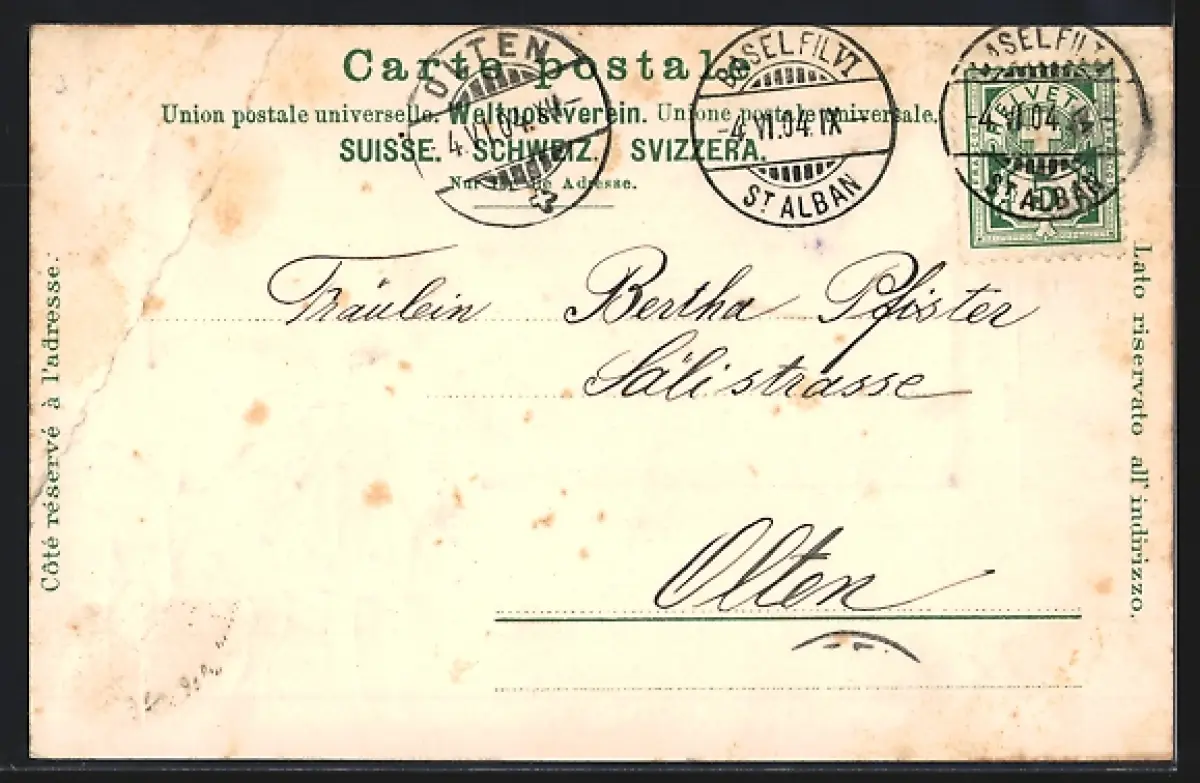 Carte postale
Union postale universelle. Weltpostverein. Unione postale universale.
SUISSE. SCHWEIZ. SVIZZERA.
Nur für die Adresse.
OLTEN
4.VI.04.XII-
BASEL FIL. VI
-4.VI.04.IX
ST ALBAN
BASEL FIL.
-4.VI.04
ST ALBAN
HELVETIA
5
Côté réservé à l'adresse.
Lato riservato all'indirizzo.
Fräulein Bertha Pfister
Sälistrasse
Olten